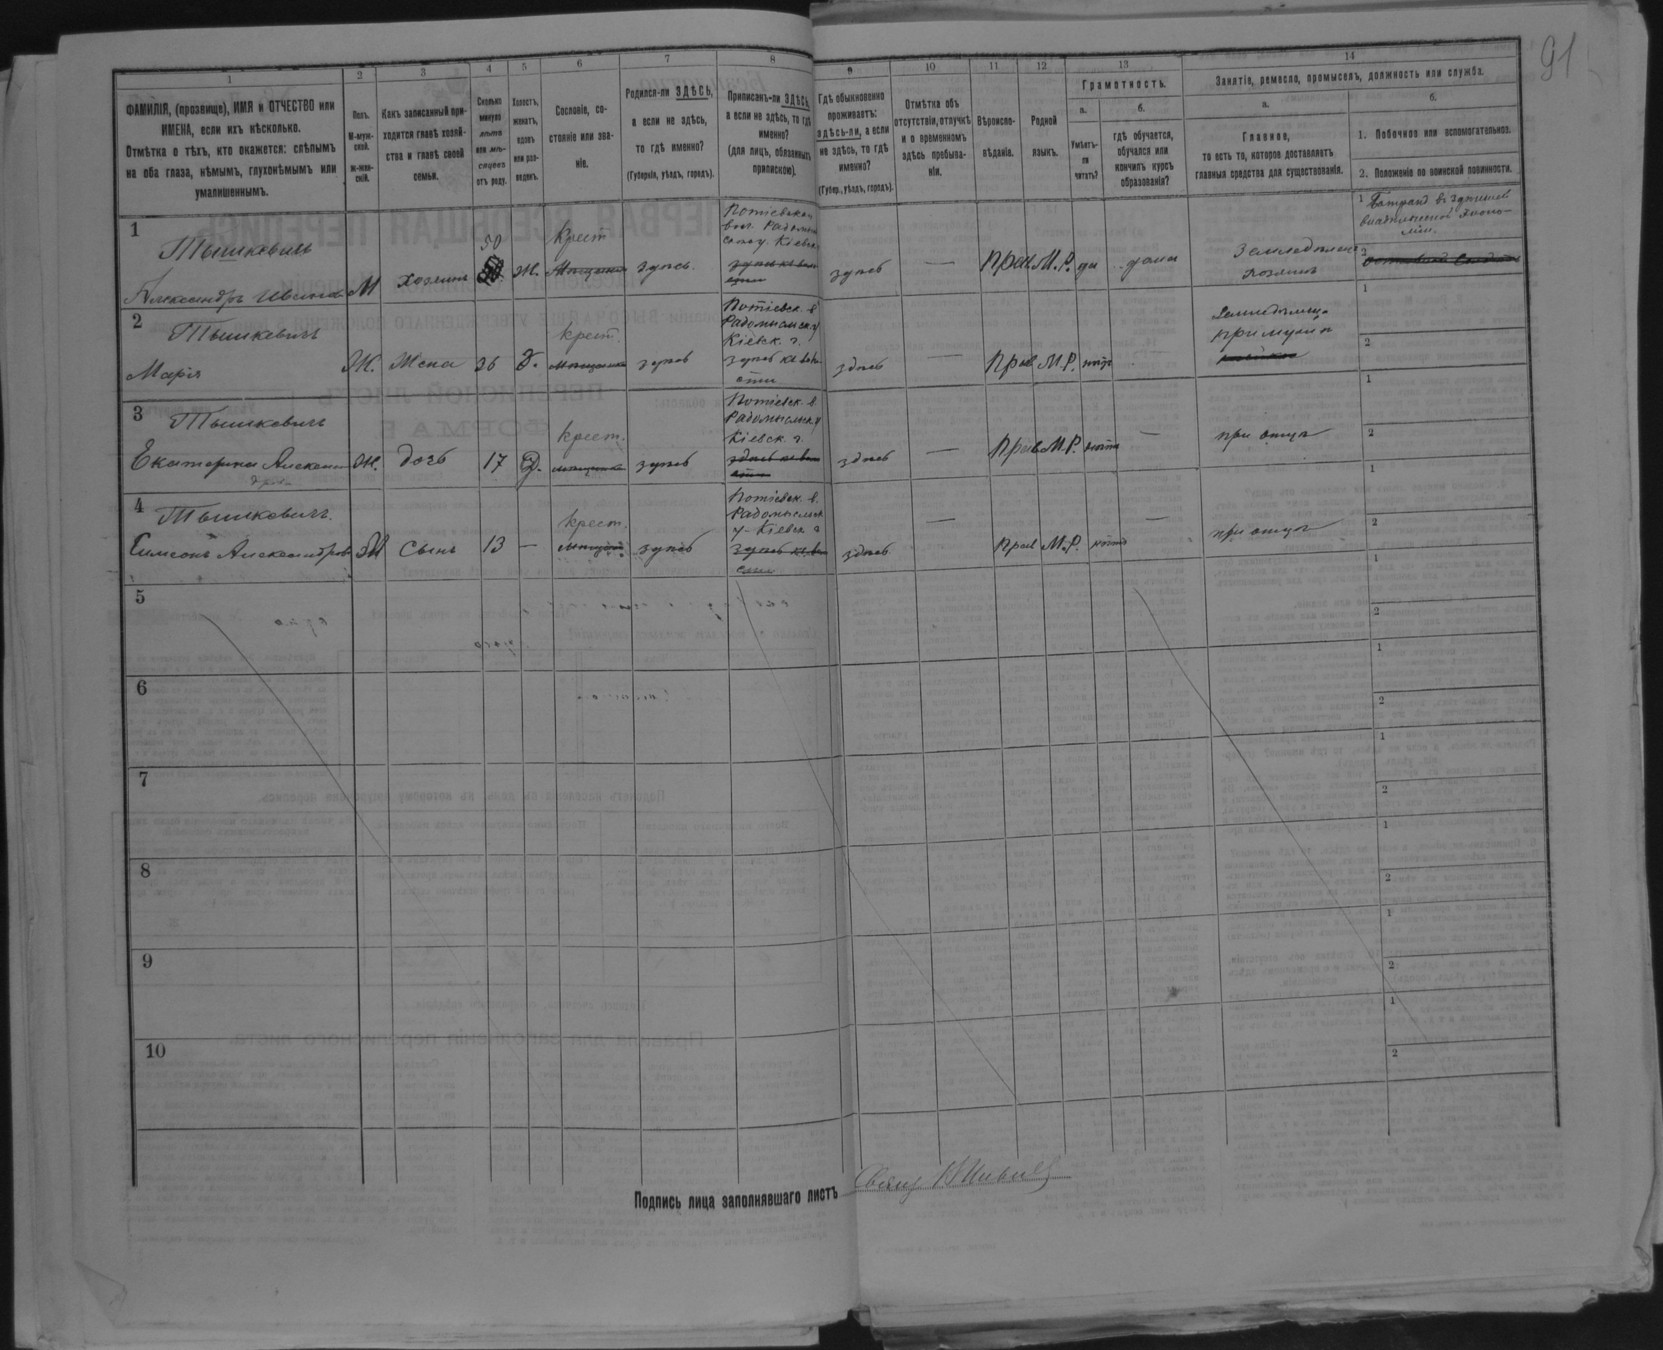 91
1
2
3
4
5
6
7
8
9
10
11
12
13
14
ФАМИЛІЯ, (прозвище), ИМЯ и ОТЧЕСТВО или
ИМЕНА, если ихъ нѣсколько.
Отмѣтка о тѣхъ, кто окажется: слѣпымъ
на оба глаза, нѣмымъ, глухонѣмымъ или
умалишеннымъ.
Полъ.
М-муж-
ской.
Ж-жен-
скій.
Какъ записанный при-
ходится главѣ хозяй-
ства и главѣ своей
семьи.
Сколько
минуло
лѣтъ
или мѣ-
сяцевъ
отъ роду.
Холостъ,
женатъ,
вдовъ
или раз-
веденъ.
Сословіе, со-
стояніе или зва-
ніе.
Родился-ли ЗДѢСЬ,
а если не здѣсь,
то гдѣ именно?
(Губернія, уѣздъ, городъ).
Приписанъ-ли ЗДѢСЬ,
а если не здѣсь, то гдѣ
именно?
(для лицъ, обязанныхъ
припискою).
Гдѣ обыкновенно
проживаетъ:
здѣсь-ли, а если
не здѣсь, то гдѣ
именно?
(Губер., уѣздъ, городъ).
Отмѣтка объ
отсутствіи, отлучкѣ
и о временномъ
здѣсь пребыва-
ніи.
Вѣроиспо-
вѣданіе.
Родной
языкъ.
Грамотность.
а.
Умѣетъ-
ли
читать?
б.
гдѣ обучается,
обучался или
кончилъ курсъ
образованія?
Занятіе, ремесло, промыселъ, должность или служба.
а.
Главное,
то есть то, которое доставляетъ
главныя средства для существованія.
б.
1. Побочное или вспомогательное.
2. Положеніе по воинской повинности.
1
Тышкевичъ
Александръ Иванов
М
хозяинъ
50
Ж.
крест
здѣсь.
здѣсь
—
Прав
М.Р.
да
дома
Земледѣлец
хозяинъ
1
2
2
Тышкевичъ
Марія
Ж.
Жена
36
З.
крест.
здѣсь
Потіевск. в
Радомысльск. у
Кіевск. г.
здѣсь
—
Прав
М.Р.
нѣтъ
при мужѣ
1
2
3
Тышкевичъ
Екатерина Александ
рова
Ж.
дочь
17
Д.
крест.
здѣсь
Потіевск. в
Радомысльск. у
Кіевск. г.
здѣсь
—
Прав
М.Р.
нѣтъ
—
при отцѣ
1
2
4
Тышкевичъ.
Симеонъ Александров
М
Сынъ
13
—
крест.
здѣсь
Потіевск. в.
Радомысльск
у. Кіевск г
здѣсь
—
Прав
М.Р.
нѣтъ
—
при отцѣ
1
2
5
1
2
6
1
2
7
1
2
8
1
2
9
1
2
10
1
2
Подпись лица заполнявшаго листъ